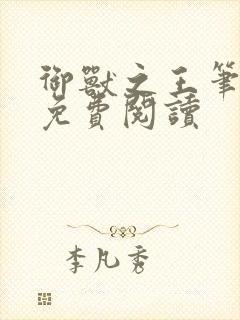 御獸之王筆
免費閱讀
李凡秀